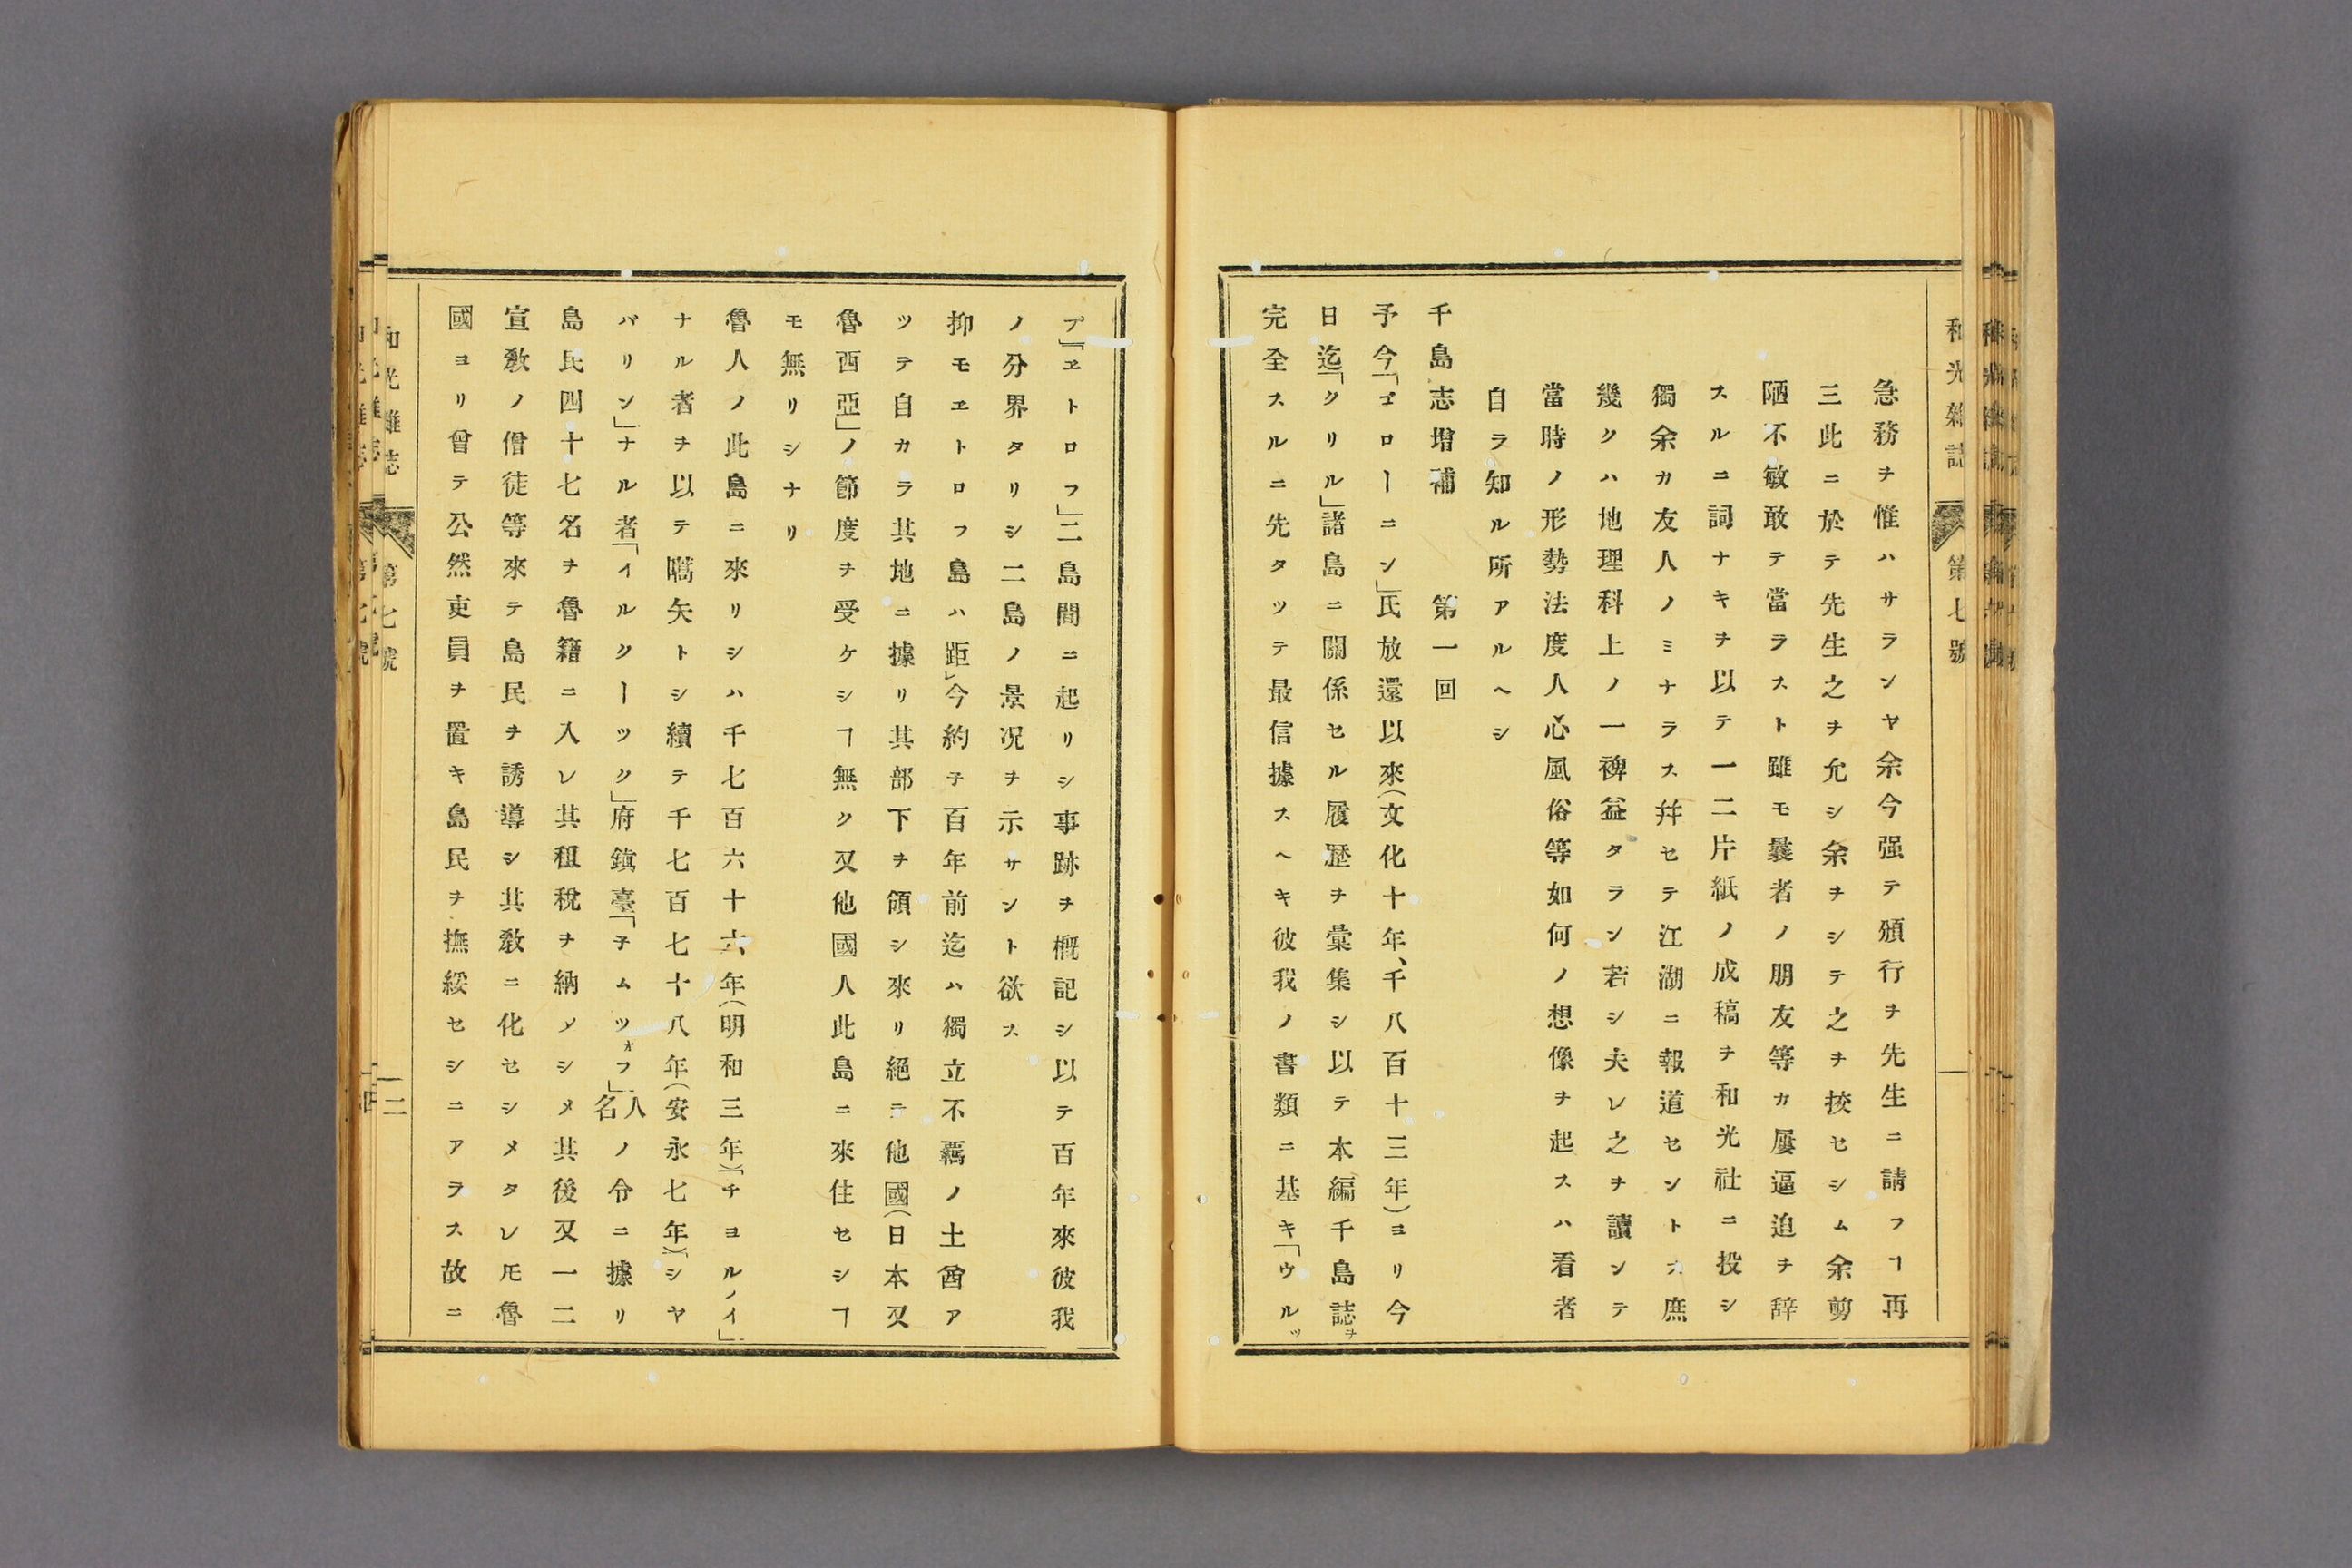 和光雜誌　第七號　一
急務ヲ惟ハサランヤ余今强テ頒行ヲ先生ニ請フヿ再
三此ニ於テ先生之ヲ允シ余ヲシテ之ヲ挍セシム余剪
陋不敏敢テ當ラスト雖モ曩者ノ朋友等カ屢逼迫ヲ辞
スルニ詞ナキヲ以テ一二片紙ノ成稿ヲ和光社ニ投シ
獨余カ友人ノミナラス幷セテ江湖ニ報道セントス庶
幾クハ地理科上ノ一裨益タラン若シ夫レ之ヲ讀ンテ
當時ノ形勢法度人心風俗等如何ノ想像ヲ起スハ看者
自ラ知ル所アルヘシ
千島志增補　　第一回
予今「ゴローニン」氏放還以來（文化十年、千八百十三年）ヨリ今
日迄「クリル」諸島ニ關係セル履歷ヲ彙集シ以テ本編千島誌ヲ
完全スルニ先タツテ最信據スヘキ彼我ノ書類ニ基キ「ウルッ
プ」「ヱトロフ」二島間ニ起リシ事跡ヲ概記シ以テ百年來彼我
ノ分界タリシ二島ノ景况ヲ示サント欲ス
抑モヱトロフ島ハ距レ今約子百年前迄ハ獨立不羈ノ土酋ア
ツテ自カラ其地ニ據リ其部下ヲ領シ來リ絕テ他國（日本又
魯西亞）ノ節度ヲ受ケシヿ無ク又他國人此島ニ來住セシヿ
モ無リシナリ
魯人ノ此島ニ來リシハ千七百六十六年（明和三年）「チヨルノイ」
ナル者ヲ以テ嚆矢トシ續テ千七百七十八年（安永七年）「シヤ
バリン」ナル者「イルクーツク」府鎭臺「子ムツォフ」人名ノ令ニ據リ
島民四十七名ヲ魯籍ニ入レ其租稅ヲ納メシメ其後又一二
宣敎ノ僧徒等來テ島民ヲ誘導シ其敎ニ化セシメタレ𪜈魯
國ヨリ曾テ公然吏員ヲ置キ島民ヲ撫綏セシニアラス故ニ
和光雜誌　第七號　二